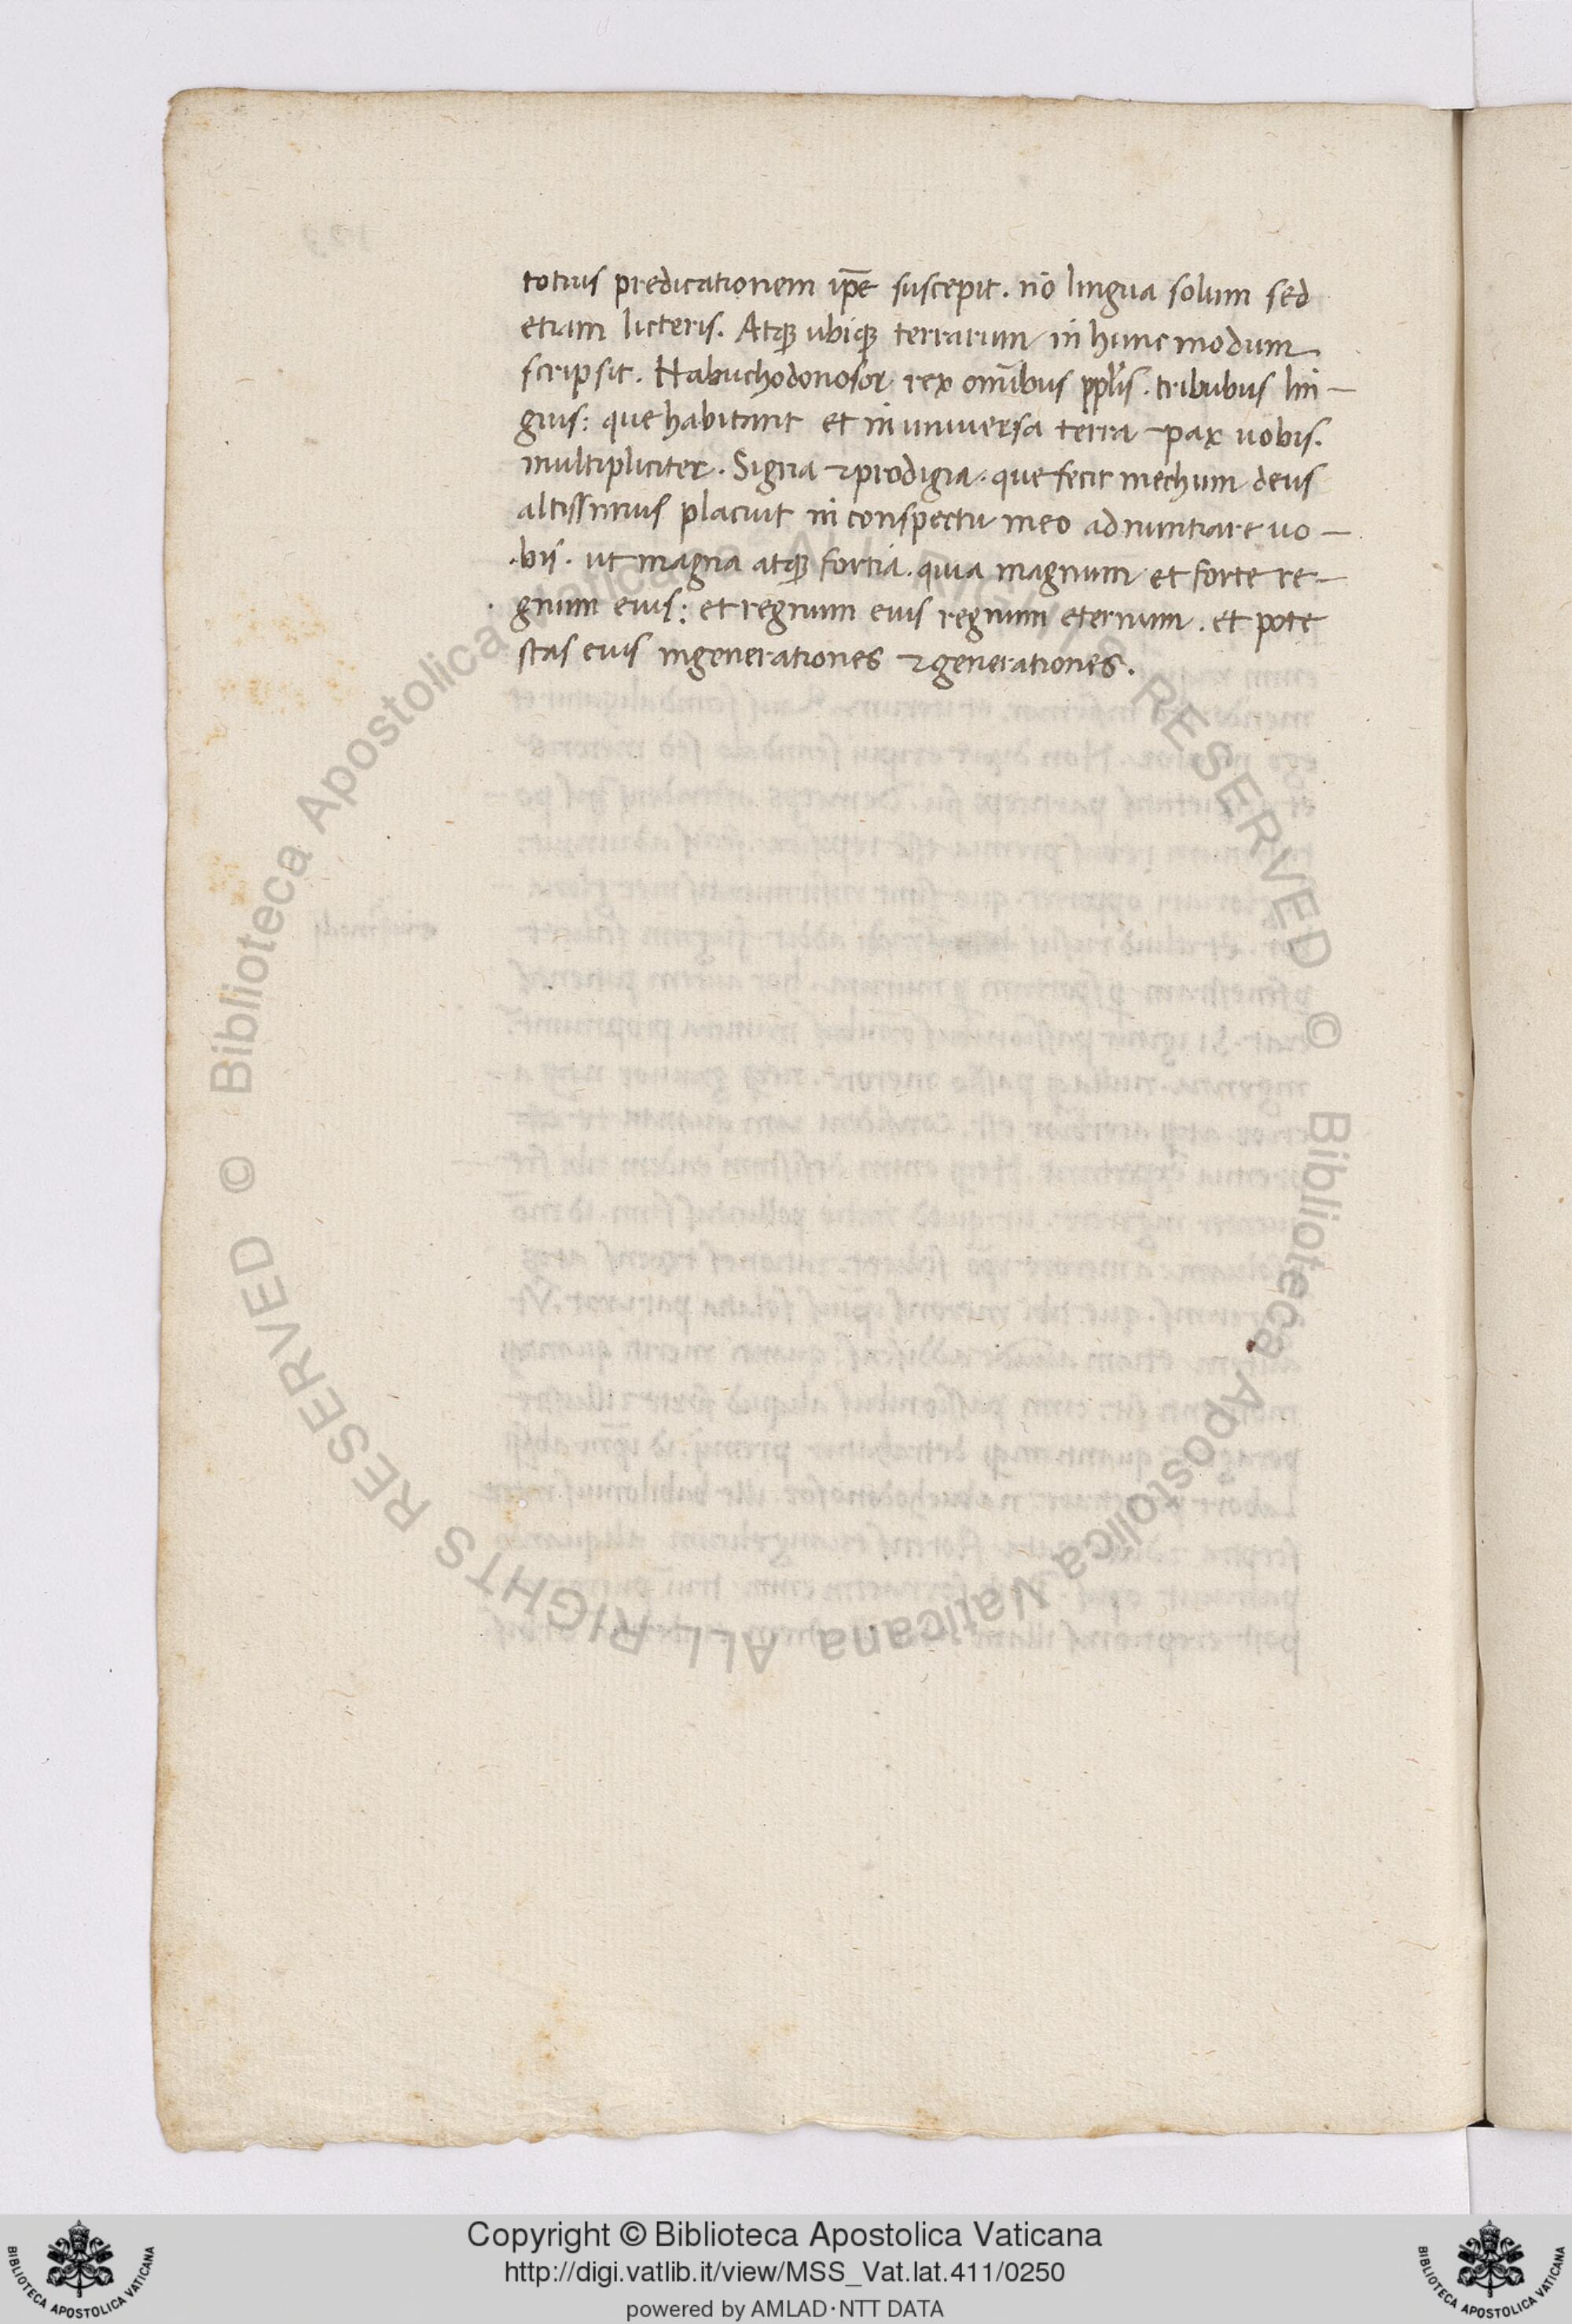 totius predicationem ip̄e suscepit. nō lingua solum sed
etiam licteris. Atqꝫ ubiqꝫ terrarum in hunc modum
scripsit. Nabuchodonosor rex om̄ibus ppl̄is. tribubus lin—
guis: que habitant et in universa terra pax uobis.
multipliciter. Signa ⁊ prodigia. que fecit mechum deus
altissimus placuit in conspectu meo adnuntiare uo—
.bis. ut magna atqꝫ fortia. quia magnum et forte re—
gnum eius: et regnum eius regnum eternum. et pote
stas eius in generationes ⁊ generationes.
© Biblioteca Apostolica Vaticana ALL RIGHTS RESERVED © Biblioteca Apostolica Vaticana ALL RIGHTS RESERVED
Copyright © Biblioteca Apostolica Vaticana
http://digi.vatlib.it/view/MSS_Vat.lat.411/0250
powered by AMLAD·NTT DATA
BIBLIOTECA APOSTOLICA VATICANA
BIBLIOTECA APOSTOLICA VATICANA